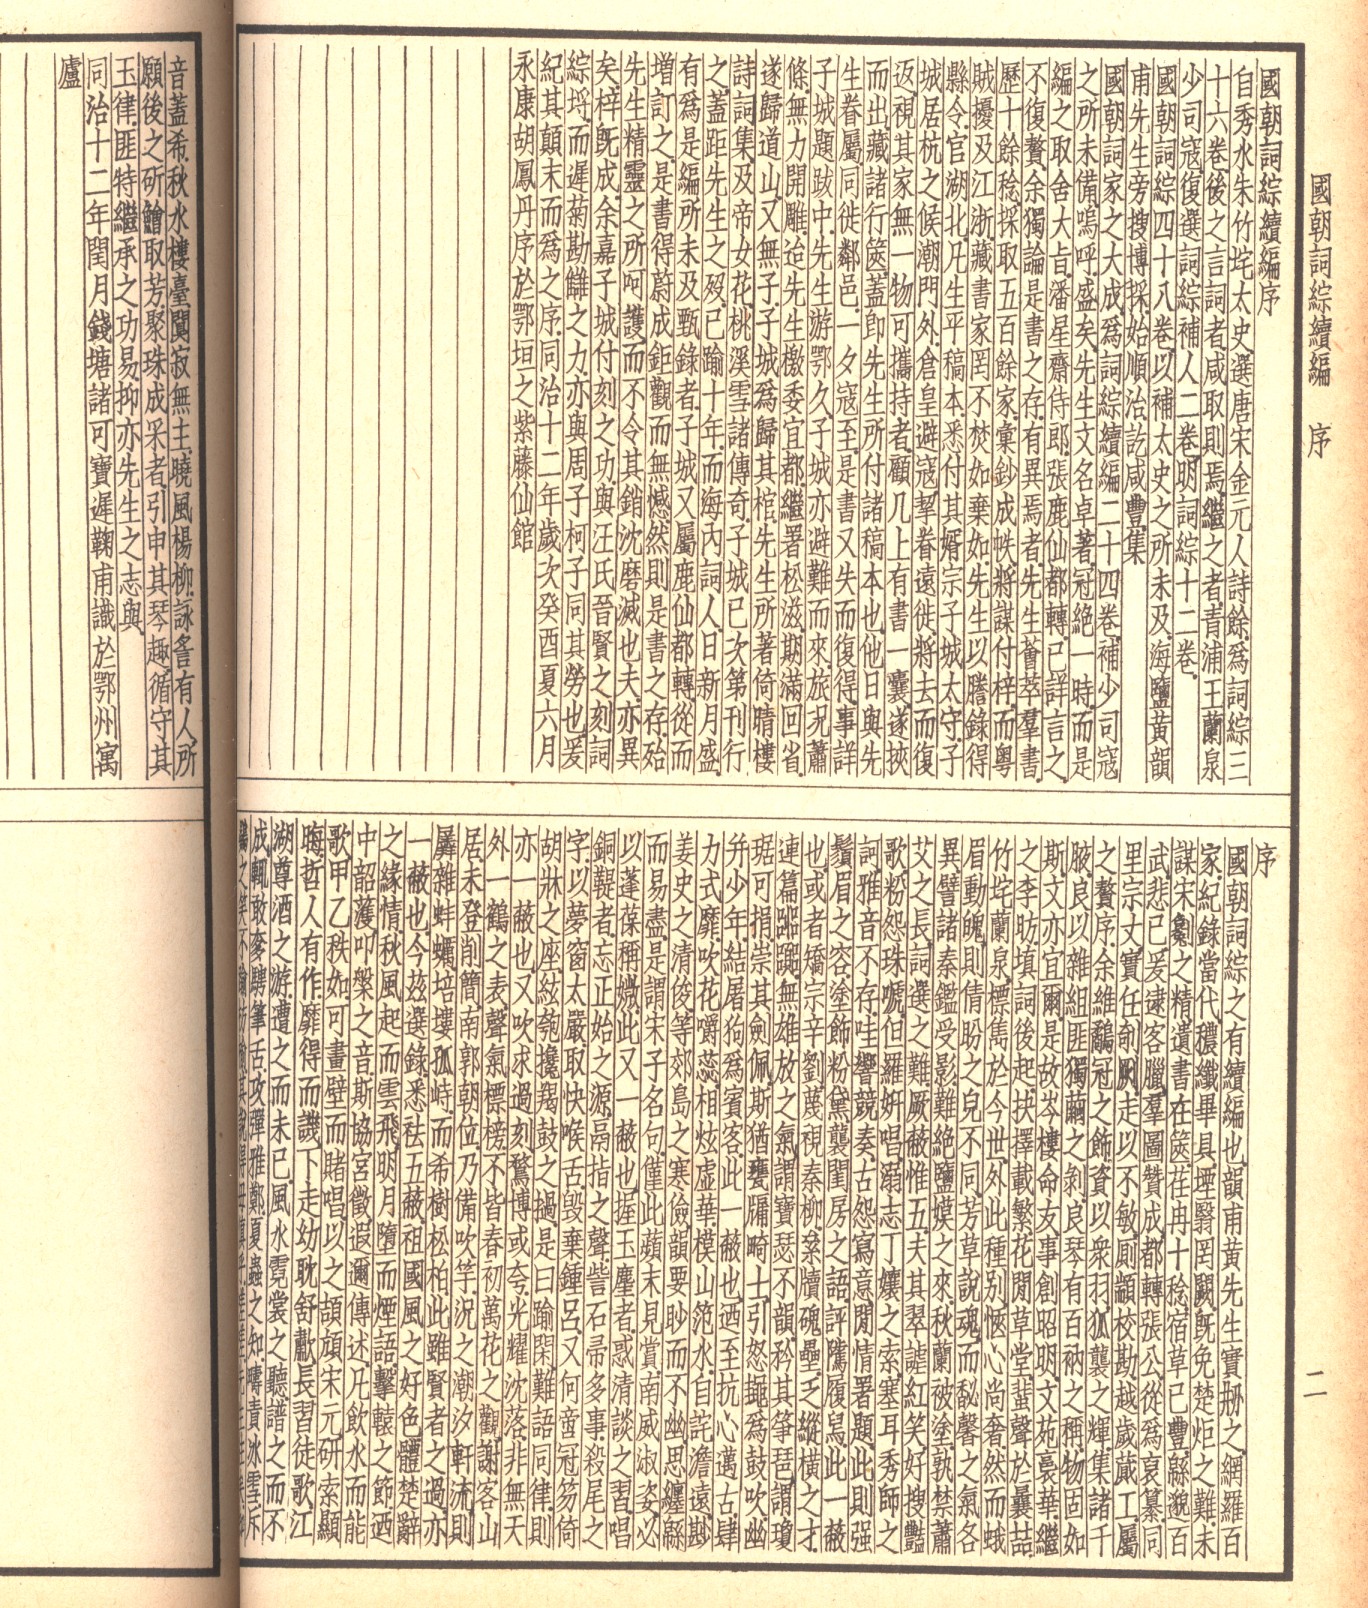 國朝詞綜續編　序
二
國朝詞綜續編序
自秀水朱竹垞太史選唐宋金元人詩餘爲詞綜三
十六卷後之言詞者咸取則焉繼之者青浦王蘭泉
少司寇復選詞綜補人二卷明詞綜十二卷
國朝詞綜四十八卷以補太史之所未及海鹽黃韻
甫先生旁搜博採始順治訖咸豐集
國朝詞家之大成爲詞綜續編二十四卷補少司寇
之所未備嗚呼盛矣先生文名卓著冠絶一時而是
編之取舍大㫖潘星齋侍郎張鹿仙都轉已詳言之
不復贅余獨論是書之存有異焉者先生薈萃羣書
歷十餘稔採取五百餘家彙鈔成帙將謀付梓而粵
賊擾及江浙藏書家罔不焚如棄如先生以謄錄得
縣令官湖北凡生平稿本悉付其婿宗子城太守子
城居杭之候潮門外倉皇避寇挈眷遠徙將去而復
返視其家無一物可攜持者顧几上有書一囊遂挾
而出藏諸行篋蓋卽先生所付諸稿本也他日與先
生眷屬同徙鄰邑一夕寇至是書又失而復得事詳
子城題跋中先生游鄂久子城亦避難而來旅况蕭
條無力開雕迨先生檄委宜都繼署松滋期滿回省
遂歸道山又無子子城爲歸其棺先生所著倚晴樓
詩詞集及帝女花桃溪雪諸傳奇子城已次第刊行
之蓋距先生之歿已踰十年而海內詞人日新月盛
有爲是編所未及甄錄者子城又屬鹿仙都轉從而
增訂之是書得蔚成鉅觀而無憾然則是書之存殆
先生精靈之所呵護而不令其銷沈磨滅也夫亦異
矣梓旣成余嘉子城付刻之功與汪氏晉賢之刻詞
綜埒而遲菊勘讎之力亦與周子柯子同其勞也爰
紀其顛末而爲之序同治十二年歲次癸酉夏六月
永康胡鳳丹序於鄂垣之紫藤仙館
序
國朝詞綜之有續編也韻甫黃先生實捬之網羅百
家紀錄當代穠纖畢具堙翳罔闕旣免楚炬之難未
謀宋㓮之精遺書在篋荏冉十稔宿草已豐緜貌百
武悲已爰逮客臘羣圖贊成都轉張公從爲裒纂同
里宗丈實任剞劂走以不敏厠顓校勘越歲蕆工屬
之贅序余維鷸冠之飾資以衆羽狐襲之輝集諸千
腋良以雜組匪獨繭之剝良琴有百衲之稱物固如
斯文亦宜爾是故岑樓命友事創昭明文苑裒華繼
之李昉塡詞後起扶擇載繁花閒草堂蜚聲於曩喆
竹垞蘭泉標雋於今世外此種别愜心尚奢然而蛾
眉動魄則倩盼之皃不同芳草說魂而馝馨之氣各
異譬諸秦鑑受影難絶鹽嫫之來秋蘭被塗孰禁蕭
艾之長詞選之難厥蔽惟五夫其翠謔紅笑好搜豔
歌粉怨珠啼但羅姧唱溺志丁孃之索塞耳秀師之
訶雅音不存哇響競奏古怨寫意閒情署題此則强
鬚眉之容塗飾粉黛襲閨房之語評隲履舃此一蔽
也或者矯宗辛劉蔑視秦柳桼牘磈壘乏縱橫之才
連篇㘁踶無雄放之氣謂寶瑟不韻矜其箏琶謂瓊
琚可捐崇其劍佩斯猶甕牖畸士引怒蠅爲鼓吹幽
幷少年結屠狗爲賓客此一蔽也迺至抗心邁古肆
力式靡吹花嚼蕊相炫虛華模山範水自詫澹遠㪽
姜史之清俊等郊島之寒儉韻要眇而不幽思纏緜
而易盡是謂宋子名句僅此蘋末見賞南威淑姿必
以蓬葆稱媺此又一蔽也握玉麈者惑清談之習唱
銅鞮者忘正始之源鬲指之聲訾石帚多事殺尾之
字以夢窗太嚴取快喉舌毀棄鍾呂又何啻冠笏倚
胡牀之座絃匏攙羯鼓之撾是曰踰閑難語同律則
亦一蔽也又吹求過刻騖博或夸光耀沈落非無天
外一鶴之表聲氣標榜不皆春初萬花之觀謝客山
居未登削簡南郭朝位乃備吹竽況之潮汐軒流則
羼雜蚌蠣培塿孤峙而希樹松柏此雖賢者之過亦
一蔽也今玆選錄悉祛五蔽祖國風之好色體楚辭
之緣情秋風起而雲飛明月墮而煙語擊轅之節迺
中韶濩叩槃之音斯協宮徵遐邇傳述凡飲水而能
歌甲乙秩如可畫壁而賭唱以之頡頏宋元研索顯
晦哲人有作靡得而譏下走幼耽舒歗長習徒歌江
湖尊酒之游遭之而未已風水霓裳之聽譜之而不
成輒敢㚇騁筆舌攻彈雅鄭夏蟲之知疇責冰雪斥
音蓋希秋水樓臺闃寂無主曉風楊柳詠誊有人所
願後之斫鱠取芳聚珠成采者引申其琴趣循守其
玉律匪特繼承之功易抑亦先生之志與
同治十二年閏月錢塘諸可寶遲鞠甫識於鄂州寓
廬